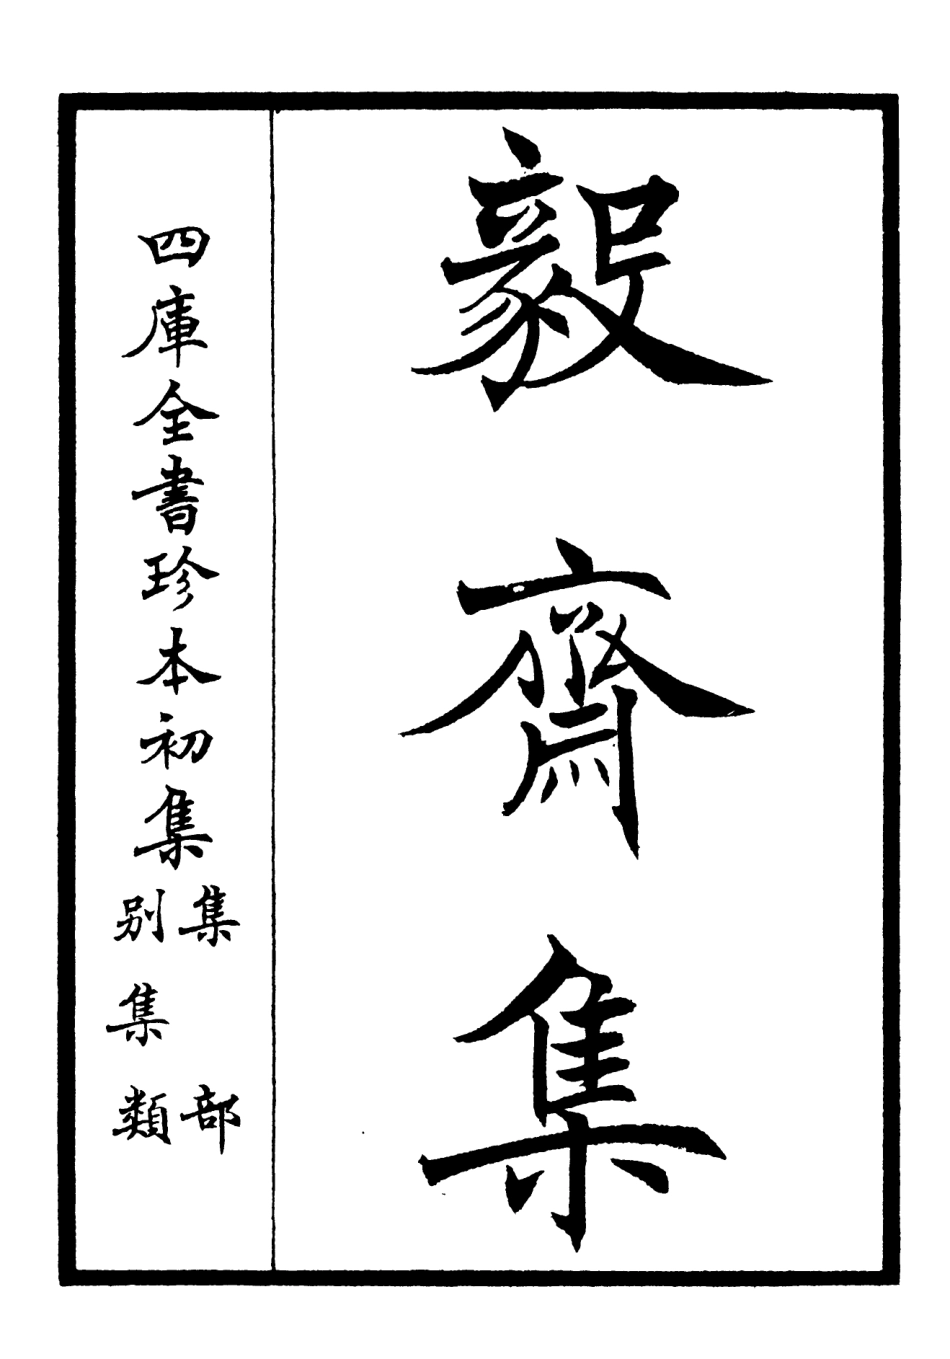 毅齋集
四庫全書珍本初集
集部
別集類